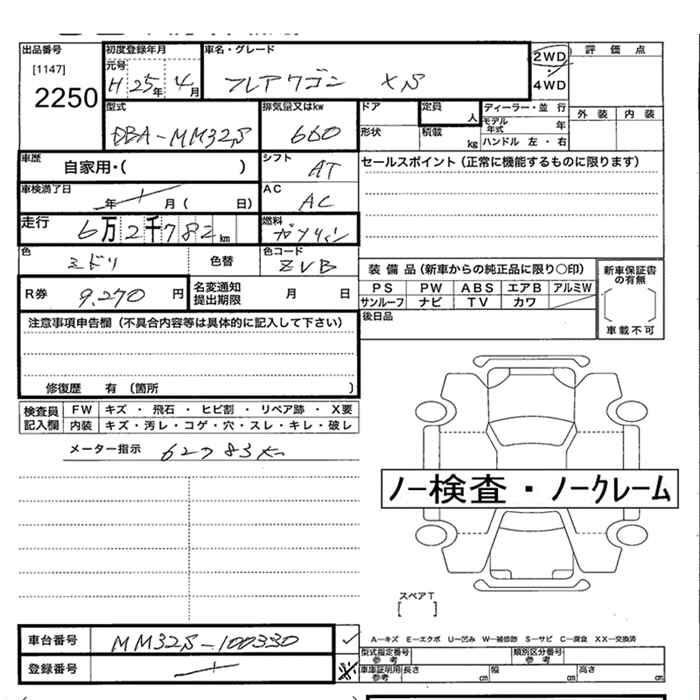 出品番号 初度登録年月 車名・グレード 2WD 評価点
[1147] 元号
2250 H 25年 4月 フレアワゴン XS 4WD
型式 排気量又はkw ドア 定員 人 ディーラー・並行 外装 内装
DBA-MM32S 660 形状 積載 kg モデル年式 年
ハンドル 左・右
車歴 自家用・( ) シフト AT セールスポイント (正常に機能するものに限ります)
車検満了日 年 月 ( 日) AC AC
走行 6万2千782km 燃料 ガソリン
色 ミドリ 色替 色コード ZVB
装備品 (新車からの純正品に限り○印) 新車保証書の有無
R券 9,270円 名変通知提出期限 月 日 PS PW ABS エアB アルミW
サンルーフ ナビ TV カワ 車載不可
注意事項申告欄 (不具合内容等は具体的に記入して下さい) 後日品
修復歴 有 (箇所 )
検査員記入欄 FW キズ・飛石・ヒビ割・リペア跡・X要
内装 キズ・汚レ・コゲ・穴・スレ・キレ・破レ
メーター指示 62783km
ノー検査・ノークレーム
スペアT
[ ]
車台番号 MM32S-100330
A-キズ E-エクボ U-凹み W-補修跡 S-サビ C-腐食 XX-交換済
登録番号
型式指定番号 参考 類別区分番号 参考
車庫証明用 参考 長さ cm 幅 cm 高さ cm